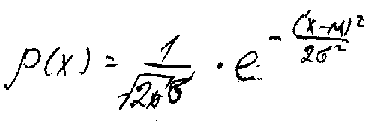 ρ(x) = 1/√(2πσ) · e^(-(x-μ)²/(2σ²))